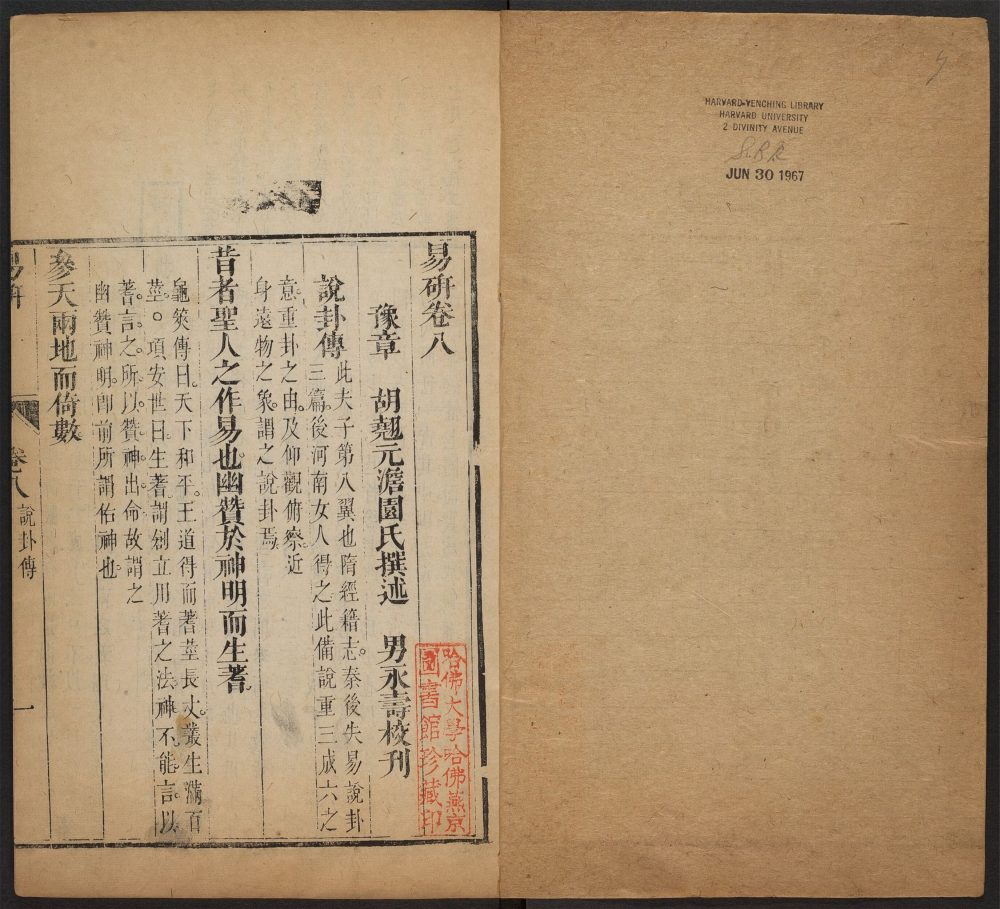 HARVARD-YENCHING LIBRARY
HARVARD UNIVERSITY
2 DIVINITY AVENUE
JUN 30 1967
易硏卷八
豫章 胡翹元澹園氏撰述 男永壽校刋
說卦傳此夫子第八翼也隋經籍志秦後失易說卦
三篇後河南女人得之此備說重三成六之
意重卦之由及仰觀俯察近
身遠物之象謂之說卦焉
昔者聖人之作易也幽贊於神明而生蓍
龜筴傳曰天下和平王道得而蓍莖長丈叢生滿百
莖○項安世曰生蓍謂創立用蓍之法神不能言以
蓍言之所以贊神出命故謂之
幽贊神明卽前所謂佑神也
參天兩地而倚數
易硏 卷八 說卦傳 一
哈佛大學哈佛燕京
圖書館珍藏印